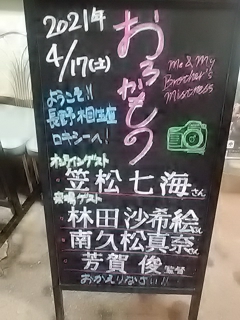 2021年
4/17(土)
おろかもの
Me & My
Brother's
Mistress
ようこそ!!
長野相生座
ロキシーへ!
オンラインゲスト
笠松七海さん
来場ゲスト
林田沙希絵さん
南久松真奈さん
芳賀俊監督
おかえりなさい!!